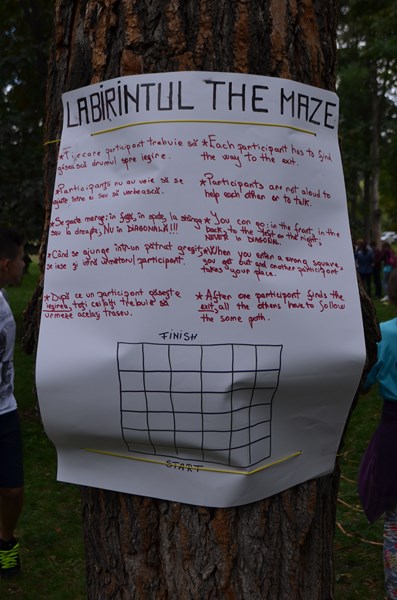 LABIRINTUL THE MAZE
* Fiecare participant trebuie să
găsească drumul spre ieșire.
* Each participant has to find
the way to the exit.
* Participanții nu au voie să se
ajute între ei sau să vorbească.
* Participants are not aloud to
help each other or to talk.
* Se poate merge: în față, în spate, la stânga
sau la dreapta, NU în DIAGONALĂ!!!
* You can go: in the front, in the
back, to the left or the right,
NEVER in DIAGONAL.
* Când se ajunge într-un pătrat greșit,
se iese și intră următorul participant.
* When you enter a wrong square,
you get out and another participant
takes your place.
* După ce un participant găsește
ieșirea, toți ceilalți trebuie să
urmeze același traseu.
* After one participant finds the
exit, all the others have to follow
the same path.
FINISH
START